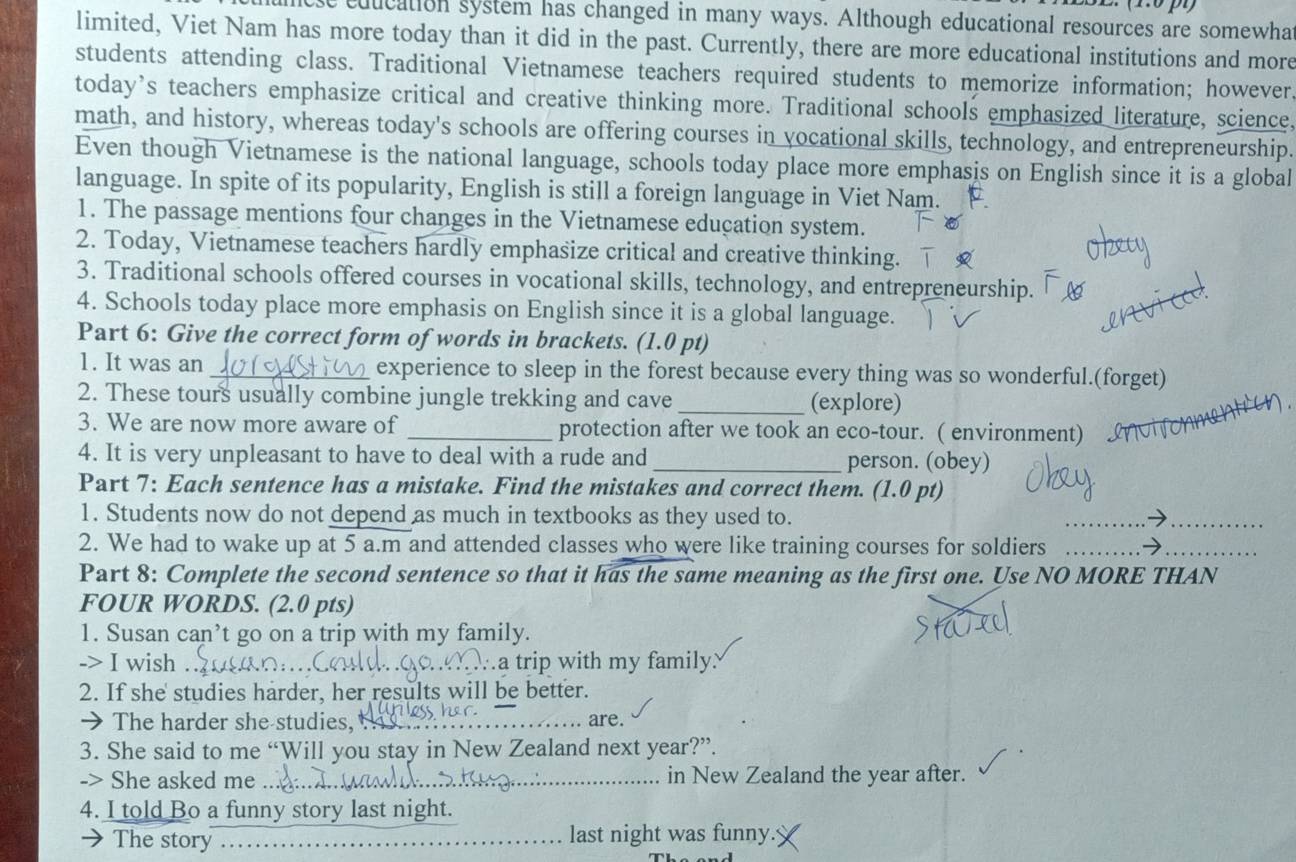 education system has changed in many ways. Although educational resources are somewhat
limited, Viet Nam has more today than it did in the past. Currently, there are more educational institutions and more
students attending class. Traditional Vietnamese teachers required students to memorize information; however,
today's teachers emphasize critical and creative thinking more. Traditional schools emphasized literature, science,
math, and history, whereas today's schools are offering courses in vocational skills, technology, and entrepreneurship.
Even though Vietnamese is the national language, schools today place more emphasis on English since it is a global
language. In spite of its popularity, English is still a foreign language in Viet Nam.
1. The passage mentions four changes in the Vietnamese education system. F
2. Today, Vietnamese teachers hardly emphasize critical and creative thinking. T
obey
3. Traditional schools offered courses in vocational skills, technology, and entrepreneurship. F
4. Schools today place more emphasis on English since it is a global language. T
Part 6: Give the correct form of words in brackets. (1.0 pt)
1. It was an ______ experience to sleep in the forest because every thing was so wonderful.(forget)
2. These tours usually combine jungle trekking and cave __________ (explore)
3. We are now more aware of ____________ protection after we took an eco-tour. ( environment)
4. It is very unpleasant to have to deal with a rude and ________________ person. (obey)
obey
Part 7: Each sentence has a mistake. Find the mistakes and correct them. (1.0 pt)
1. Students now do not depend as much in textbooks as they used to. ...........→............
2. We had to wake up at 5 a.m and attended classes who were like training courses for soldiers ...........→............
Part 8: Complete the second sentence so that it has the same meaning as the first one. Use NO MORE THAN
FOUR WORDS. (2.0 pts)
1. Susan can't go on a trip with my family.
-> I wish Susan could go on a trip with my family.
2. If she studies harder, her results will be better.
→ The harder she studies, ........ her ........ are.
3. She said to me “Will you stay in New Zealand next year?”.
-> She asked me if I would stay ........ in New Zealand the year after.
4. I told Bo a funny story last night.
→ The story ................................ last night was funny.
The end